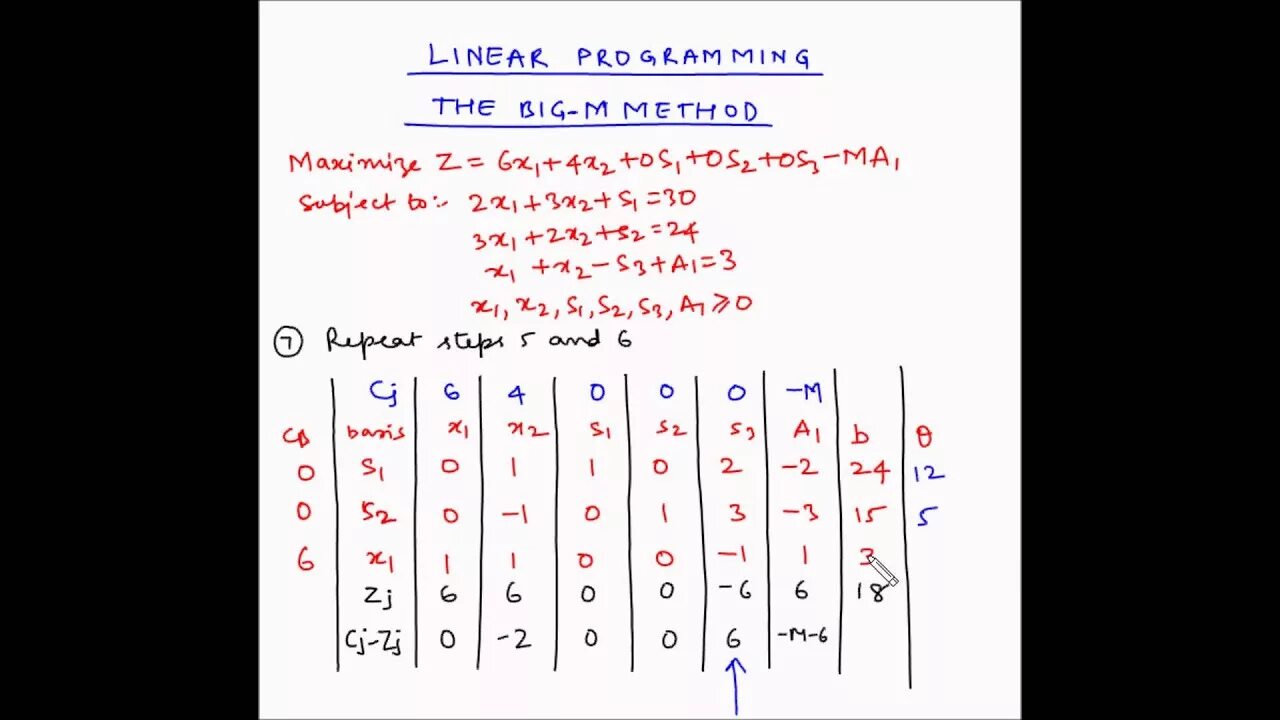 LINEAR PROGRAMMING
THE BIG-M METHOD
Maximize Z = 6x₁ + 4x₂ + 0S₁ + 0S₂ + 0S₃ - MA₁
Subject to:- 2x₁ + 3x₂ + S₁ = 30
3x₁ + 2x₂ + S₂ = 24
x₁ + x₂ - S₃ + A₁ = 3
x₁, x₂, S₁, S₂, S₃, A₁ ≥ 0
⑦ Repeat steps 5 and 6
Cj 6 4 0 0 0 -M
CB basis x₁ x₂ S₁ S₂ S₃ A₁ b θ
0 S₁ 0 1 1 0 2 -2 24 12
0 S₂ 0 -1 0 1 3 -3 15 5
6 x₁ 1 1 0 0 -1 1 3
Zj 6 6 0 0 -6 6 18
Cj-Zj 0 -2 0 0 6 -M-6